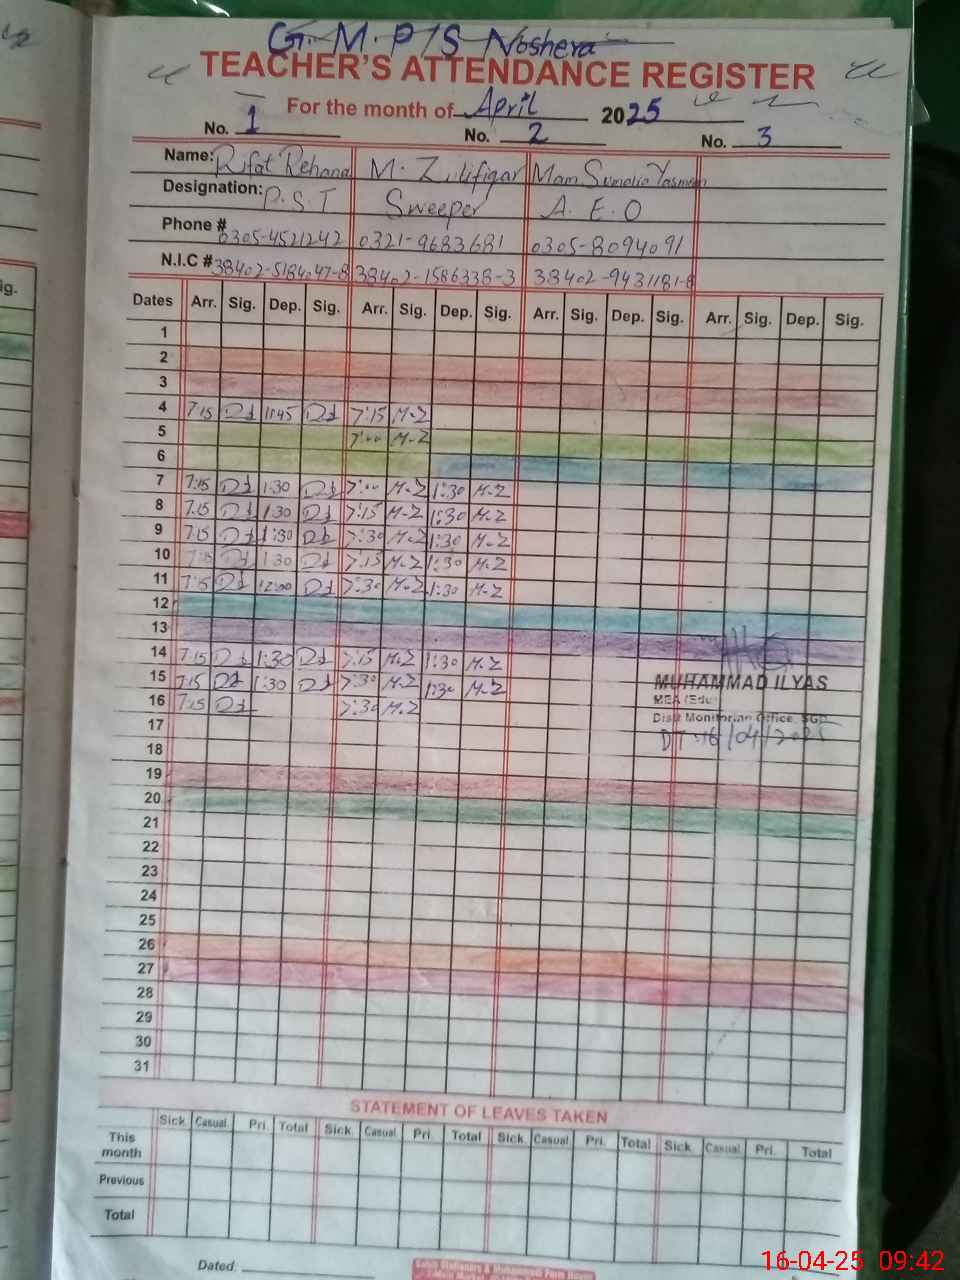 G.M.P/S Noshera
TEACHER'S ATTENDANCE REGISTER
For the month of April 2025
No. 1 No. 2 No. 3
Name: Rifat Rehana M. Zulifiqar Mam Sumaira Yasmeen
Designation: P.S.T Sweeper A.E.O
Phone # 0305-4521242 0321-9683681 0305-8094091
N.I.C # 38402-5184047-8 38402-1586338-3 38402-9431181-8
Dates Arr. Sig. Dep. Sig. Arr. Sig. Dep. Sig. Arr. Sig. Dep. Sig. Arr. Sig. Dep. Sig.
1
2
3
4 7:15 11:45 7:15 M-Z
5 7:00 M-Z
6
7 7:15 1:30 7:00 M-Z 1:30 M-Z
8 7:15 1:30 7:15 M-Z 1:30 M-Z
9 7:15 1:30 7:30 M-Z 1:30 M-Z
10 7:15 1:30 7:15 M-Z 1:30 M-Z
11 7:15 12:00 7:30 M-Z 1:30 M-Z
12
13
14 7:15 1:30 7:15 M-Z 1:30 M-Z
15 7:15 1:30 7:30 M-Z 1:30 M-Z
MUHAMMAD ILYAS
MEA (Edu)
16 7:15 7:30 M-Z
Distt Monitoring Office, SGD
DT:16/04/2025
17
18
19
20
21
22
23
24
25
26
27
28
29
30
31
STATEMENT OF LEAVES TAKEN
Sick Casual Pri. Total Sick. Casual Pri. Total Sick. Casual Pri. Total Sick. Casual Pri. Total
This month
Previous
Total
Dated:
16-04-25 09:42